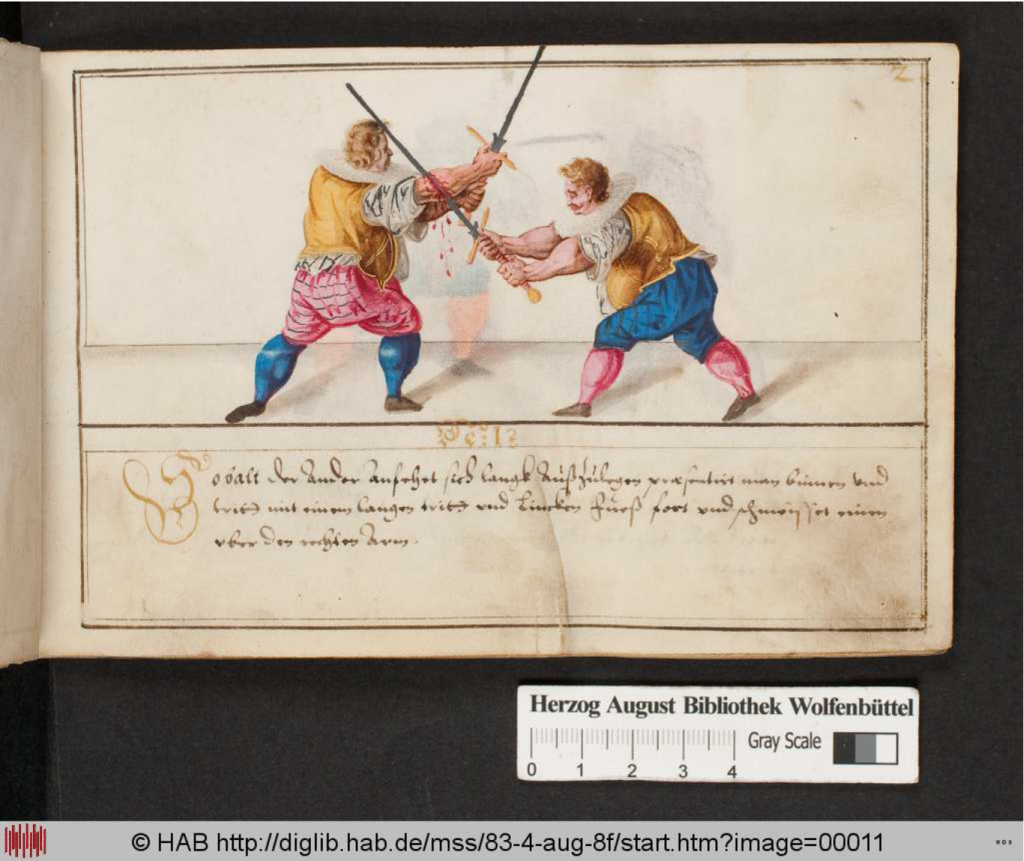 2
No: 12
So balt der Ander Anfehet sich langk Außzulegen præsentirt man binnen und
tritt mit einem langen tritt und Lincken Fueß fort und schmeisset einen
uber den rechten Arm.
Herzog August Bibliothek Wolfenbüttel
Gray Scale
0 1 2 3 4
© HAB http://diglib.hab.de/mss/83-4-aug-8f/start.htm?image=00011